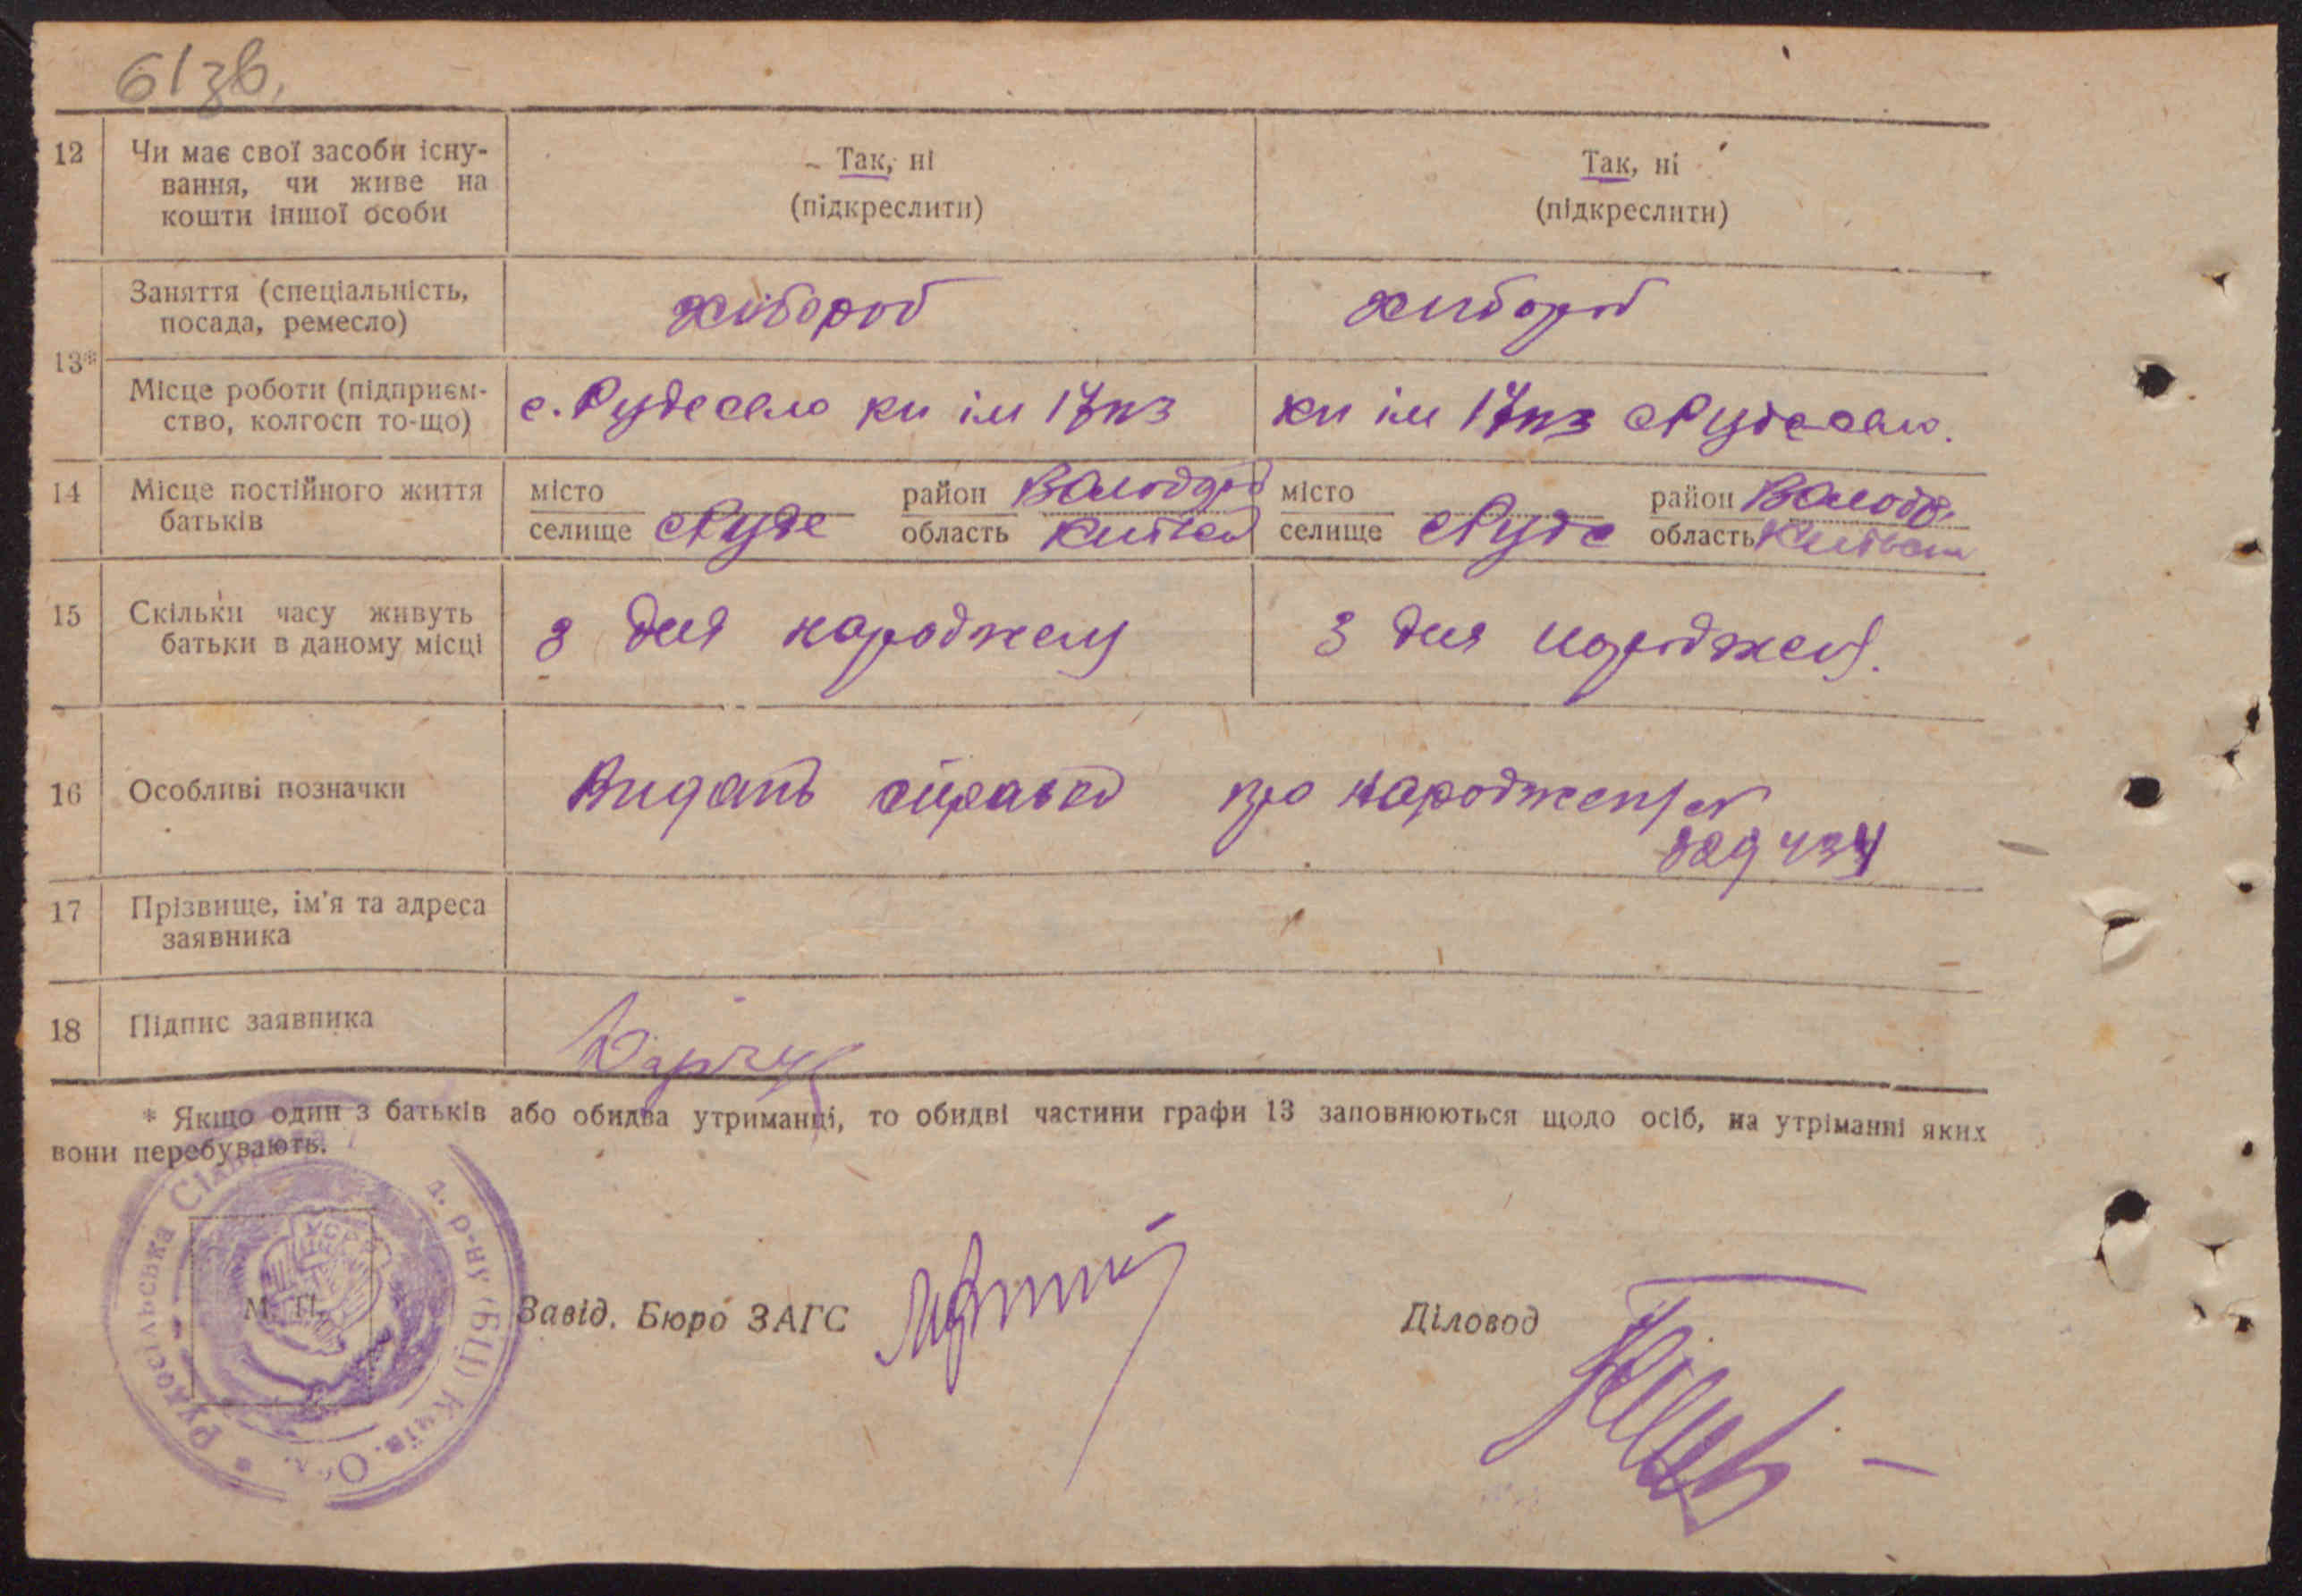 61зв.
12 Чи має свої засоби існу- Так, ні Так, ні
вання, чи живе на (підкреслити) (підкреслити)
кошти іншої особи
Заняття (спеціальність, хлібороб хлібороб
посада, ремесло)
13*
Місце роботи (підприєм- с. Рудесело кп ім 17пз кп ім 17пз с Рудесело.
ство, колгосп то-що)
14 Місце постійного життя місто район Володар місто район Волод.
батьків селище с Руде область Київськ селище с Руде область Київськ
15 Скільки часу живуть З дня народжену З дня народжену.
батьки в даному місці
16 Особливі позначки Видать справку про народження
17 Прізвище, ім'я та адреса
заявника
18 Підпис заявника
* Якщо один з батьків або обидва утриманці, то обидві частини графи 13 заповнюються щодо осіб, на утріманні яких
вони перебувають.
Рудосільська Сільрада р-ну (БЦ) Київ. Обл.
М. П.
Завід. Бюро ЗАГС Діловод